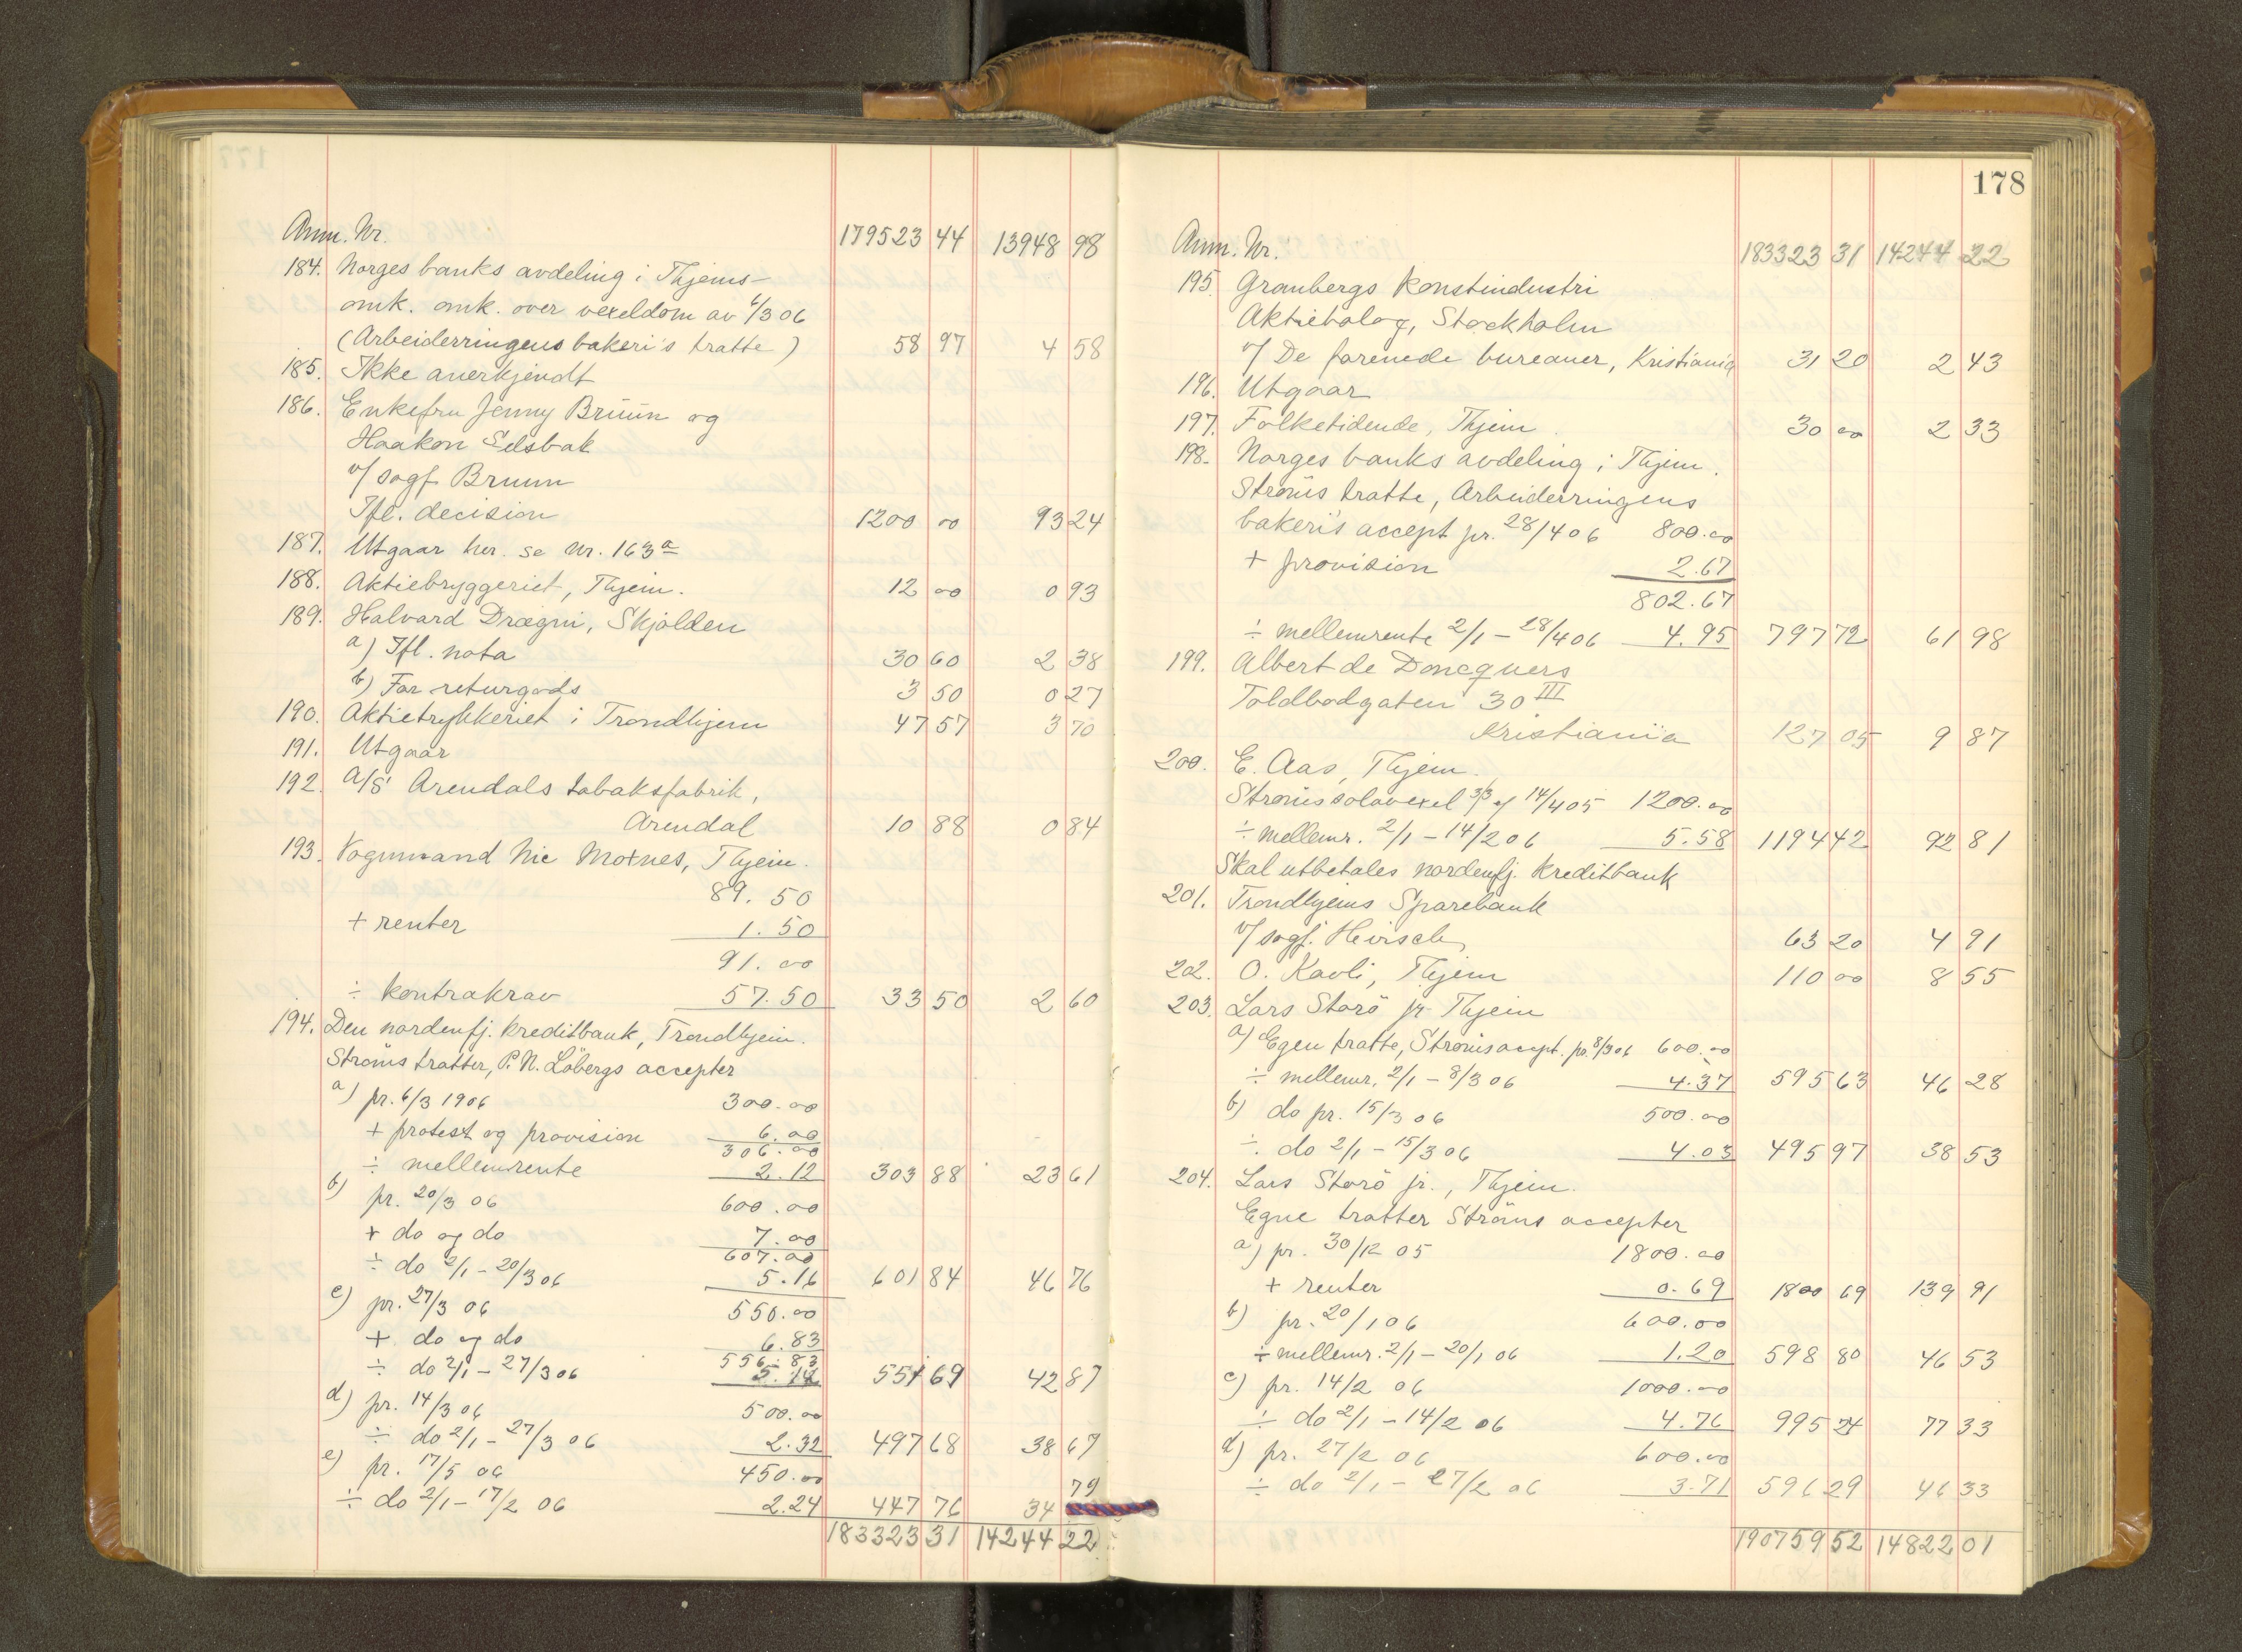 Anm. Nr. 179523 44 13948 98
184. Norges banks avdeling i Thjems
omk. omk. over vexeldom av 6/3 06
(Arbeiderringens bakeri's tratte) 58 97 4 58
185. Ikke anerkjendt
186. Enkefru Jenny Bruun og
Haakon Selsbak
v/ sagf. Bruun
Ifl. decision 1200 00 93 24
187. Utgaar her. se Nr. 163a
188. Aktiebryggeriet, Thjem. 12 00 0 93
189. Halvard Drægni, Skjolden
a) Ifl. nota 30 60 2 38
b) For returgods 3 50 0 27
190. Aktietrykkeriet i Trondhjem 47 57 3 70
191. Utgaar
192. A/S Arendals tobaksfabrik,
Arendal 10 88 0 84
193. Vognmand Nic Moxnes, Thjem.
89.50
+ renter 1.50
91.00
÷ kontrakrav 57.50 33 50 2 60
194. Den nordenfj. kreditbank, Trondhjem.
Ströms tratter, P. N. Löbergs accepter
a) pr. 6/3 1906 300.00
+ protest og provision 6.00
306.00
÷ mellemrente 2.12 303 88 23 61
b) pr. 20/3 06 600.00
+ do og do 7.00
607.00
÷ do 2/1 - 20/3 06 5.16 601 84 46 76
c) pr. 27/3 06 550.00
+ do og do 6.83
556.83
÷ do 2/1 - 27/3 06 5.14 551 69 42 87
d) pr. 14/3 06 500.00
÷ do 2/1 - 27/3 06 2.32 497 68 38 67
e) pr. 17/5 06 450.00
÷ do 2/1 - 17/2 06 2.24 447 76 34 79
183323 31 14244 22
178
Anm. Nr. 183323 31 14244 22
195. Granbergs Konstindustri
Aktiebolag, Stockholm
v/ De forenede bureauer, Kristiania 31 20 2 43
196. Utgaar
197. Folketidende, Thjem. 30 00 2 33
198. Norges banks avdeling i Thjem.
Ströms tratte, Arbeiderringens
bakeri's accept pr. 28/4 06 800.00
+ provision 2.67
802.67
÷ mellemrente 2/1 - 28/4 06 4.95 797 72 61 98
199. Albert de Doncquers
Toldbodgaten 30 III
Kristiania 127 05 9 87
200. E. Aas, Thjem.
Ströms solavexel 3/3 14/4 05 1200.00
÷ mellemr. 2/1 - 14/2 06 5.58 1194 42 92 81
Skal utbetales nordenfj. Kreditbank
201. Trondhjems Sparebank
v/ sagf. Hirsch 63 20 4 91
202. O. Kavli, Thjem 110 00 8 55
203. Lars Storö jr. Thjem
a) Egen tratte, Ströms accept. pr. 8/3 06 600.00
÷ mellemr. 2/1 - 8/3 06 4.37 595 63 46 28
b) do pr. 15/3 06 500.00
÷ do 2/1 - 15/3 06 4.03 495 97 38 53
204. Lars Storö jr., Thjem.
Egne tratter Ströms accepter
a) pr. 30/12 05 1800.00
+ renter 0.69 1800 69 139 91
b) pr. 20/1 06 600.00
÷ mellemr. 2/1 - 20/1 06 1.20 598 80 46 53
c) pr. 14/2 06 1000.00
÷ do 2/1 - 14/2 06 4.76 995 24 77 33
d) pr. 27/2 06 600.00
÷ do 2/1 - 27/2 06 3.71 596 29 46 33
190759 52 14822 01